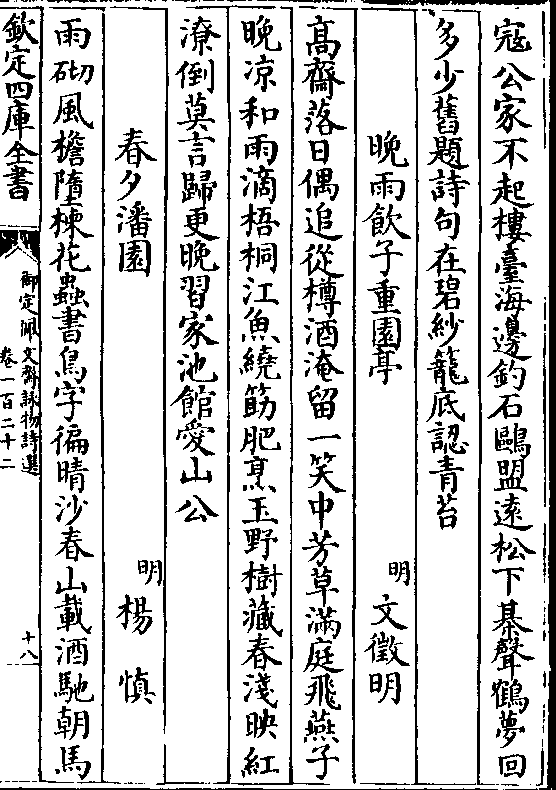 寇公家不起樓臺海邊釣石鷗盟遠松下棊聲鶴夢回
多少舊題詩句在碧紗籠底認青苔
晚雨飲子重園亭
明 文徵明
高齋落日偶追從樽酒淹留一笑中芳草滿庭飛燕子
晚凉和雨滴梧桐江魚繞筯肥烹玉野樹藏春淺映紅
潦倒莫言歸更晚習家池館愛山公
春夕潘園
明 楊慎
雨砌風檐墮楝花蟲書鳥字徧晴沙春山載酒馳朝馬
欽定四庫全書
御定佩文齋詠物詩選
卷一百二十二
十八